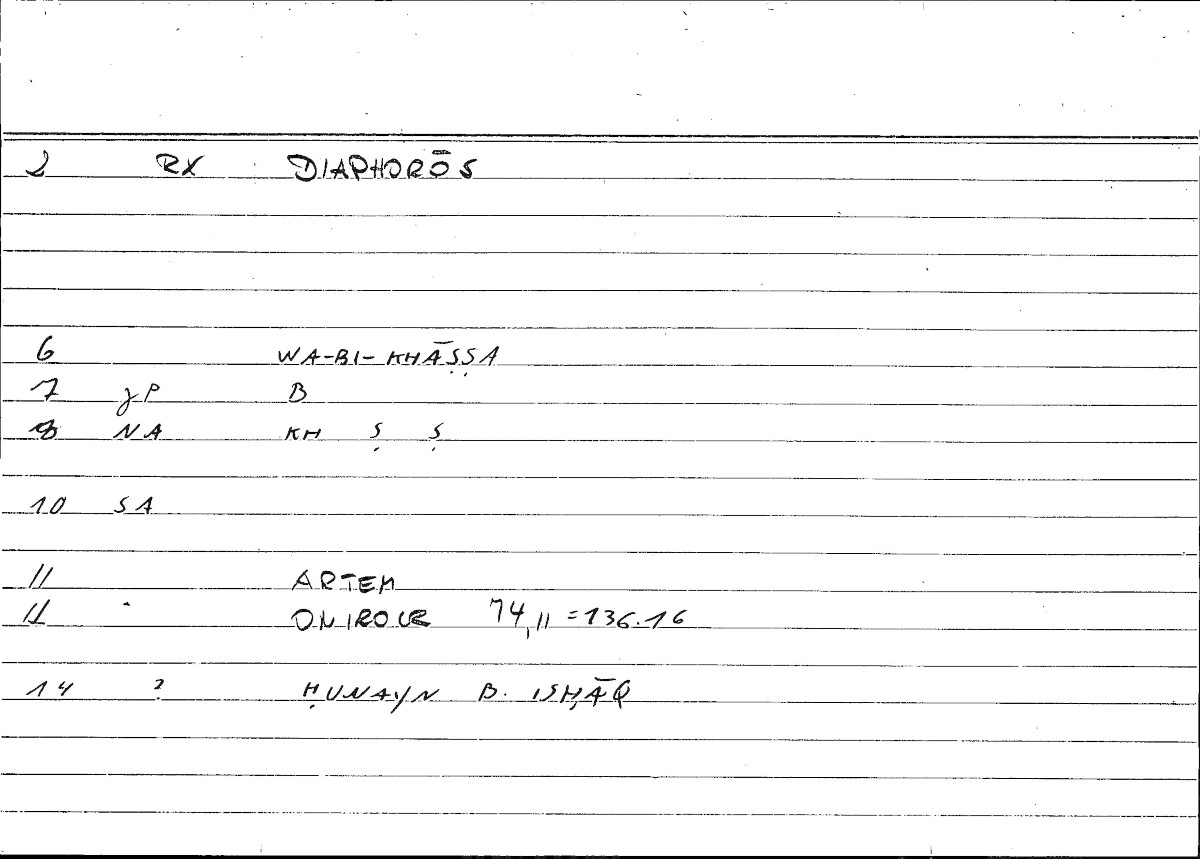 2 RX DIAPHORŌS
6 WA-BI-KHĀṢṢA
7 gP B
8 NA KH Ṣ Ṣ
10 SA
11 ARTEM
11 ONIROCR 74,11 = 136.16
14 ? ḤUNAYN B. ISḤĀQ